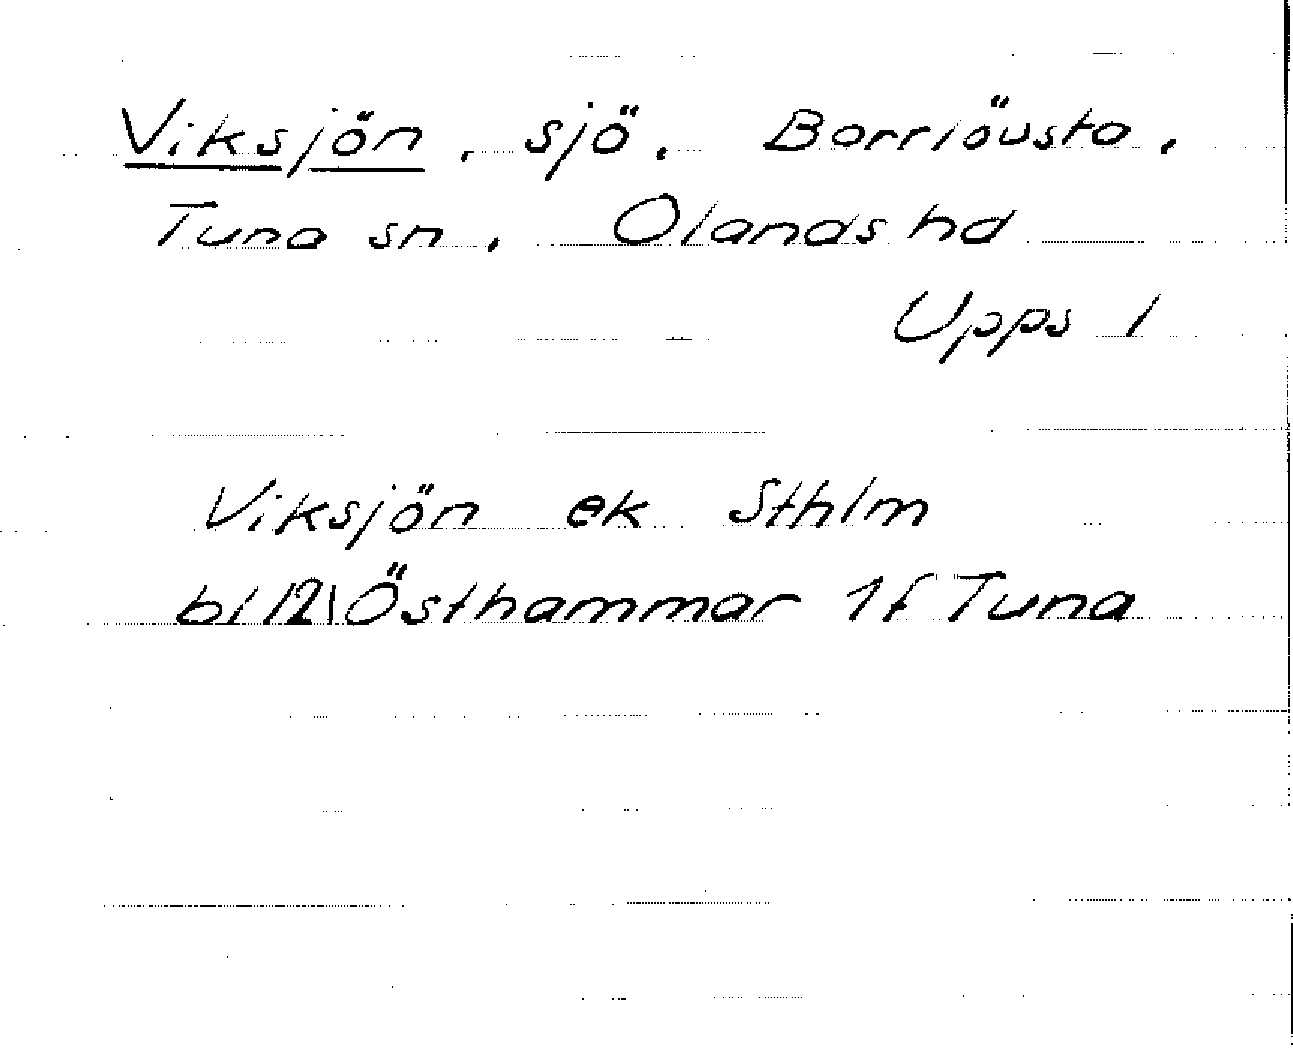 Viksjön, sjö, Barrlövsta,
Tuna sn, Olands hd
Upps l
Viksjön ek Sthlm
bl 121 Östhammar 1f Tuna